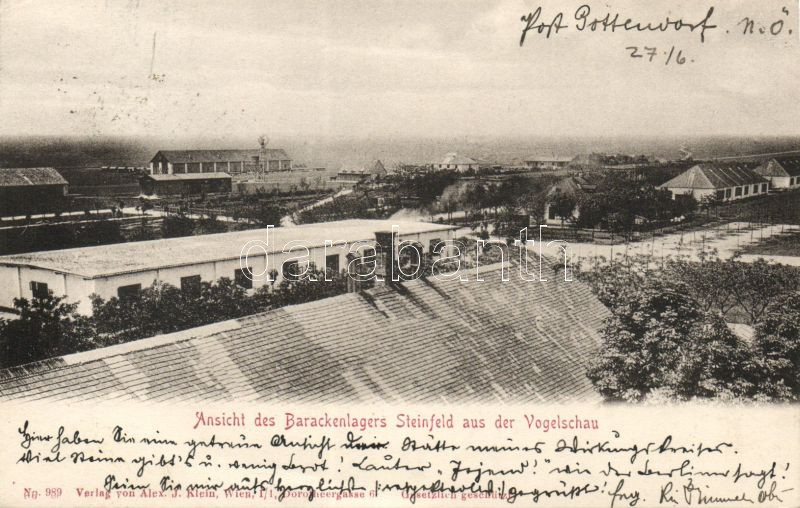 Post Pottendorf. N.Ö.
27./6.
© darabanth.com
Ansicht des Barackenlagers Steinfeld aus der Vogelschau
Hier haben Sie eine getreue Ansicht der Stätte meines Wirkungskreises.
Viel Steine gibt's u. wenig Brot! Lauter "Jejend" wie der Berliner sagt!
Seien Sie mir aufs herzlichste gegrüßt!
No. 989 Verlag von Alex. J. Klein, Wien, I/1, Dorotheergasse 6. Gesetzlich geschützt.